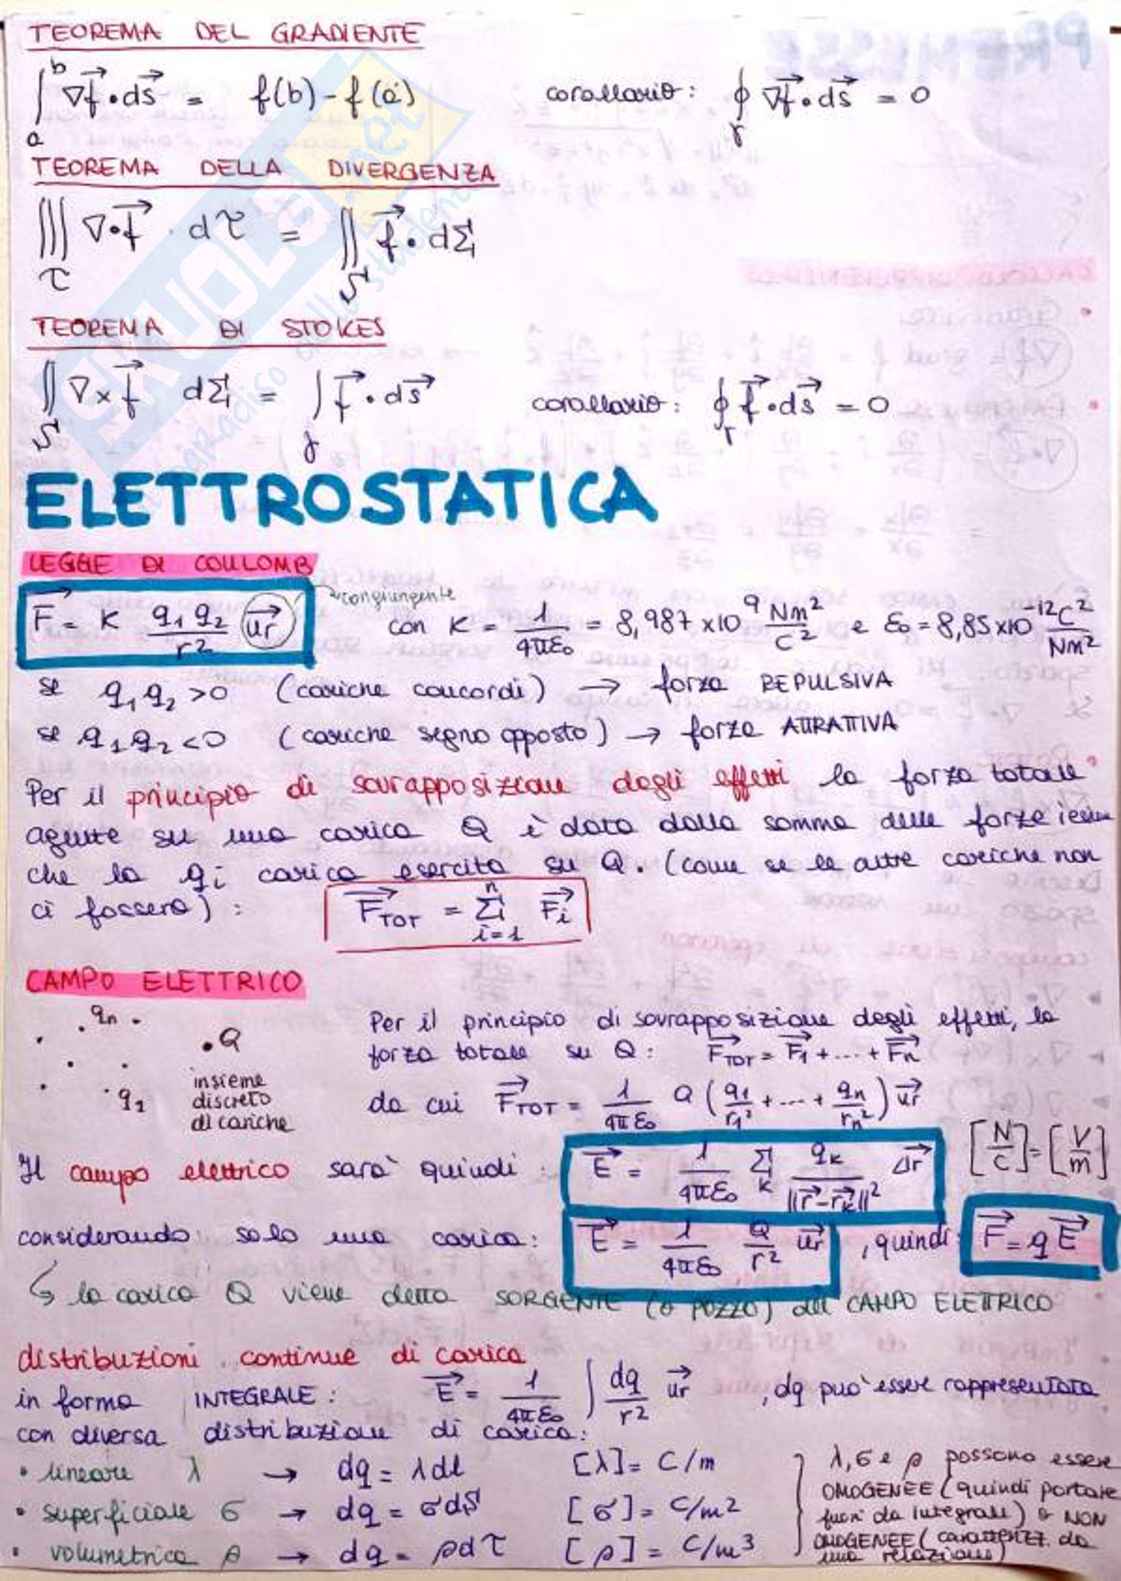 TEOREMA DEL GRADIENTE
∫ₐᵇ ∇f⃗ • ds⃗ = f(b) - f(a)    corollario: ∮γ ∇f⃗ • ds⃗ = 0
TEOREMA DELLA DIVERGENZA
∭τ ∇•f⃗ · dτ = ∬S f⃗ • dΣ
TEOREMA DI STOKES
∬S ∇×f⃗ dΣ = ∫γ f⃗ • ds⃗    corollario: ∮r f⃗ • ds⃗ = 0
ELETTROSTATICA
LEGGE DI COULOMB
F⃗ = K q₁q₂/r² u⃗r    congiungente    con K = 1/4πε₀ = 8,987 x10⁹ Nm²/C² e ε₀ = 8,85x10⁻¹² C²/Nm²
se q₁q₂ >0 (cariche concordi) → forza REPULSIVA
se q₁q₂ <0 (cariche segno opposto) → forza ATTRATTIVA
Per il principio di sovrapposizione degli effetti la forza totale
agente su una carica Q è data dalla somma delle forze
che la qi carica esercita su Q. (come se le altre cariche non
ci fossero): F⃗TOT = Σⁿᵢ₌₁ F⃗i
CAMPO ELETTRICO
. qn .
.Q
. q₂
insieme
discreto
di cariche
Per il principio di sovrapposizione degli effetti, la
forza totale su Q: F⃗TOT = F⃗₁ + ... + F⃗n
da cui F⃗TOT = 1/4πε₀ Q (q₁/r₁² + ... + qn/rn²) u⃗r
Il campo elettrico sarà quindi: E⃗ = 1/4πε₀ Σk qk/||r⃗-r⃗k||² Δr⃗    [N/C]=[V/m]
considerando solo una carica: E⃗ = 1/4πε₀ Q/r² u⃗r , quindi: F⃗=qE⃗
↳ la carica Q viene detta SORGENTE (o POZZO) del CAMPO ELETTRICO
distribuzioni continue di carica
in forma INTEGRALE: E⃗ = 1/4πε₀ ∫ dq/r² u⃗r , dq può essere rappresentata
con diversa distribuzione di carica:
• lineare λ → dq = λdl    [λ]= C/m
• superficiale σ → dq = σdS    [σ]= C/m²
• volumetrica ρ → dq = ρdτ    [ρ]= C/m³
λ,σ e ρ possono essere
OMOGENEE (quindi portate
fuori da integrale) o NON
OMOGENEE (caratteriz. da
una relazione)
SKUOLA.net